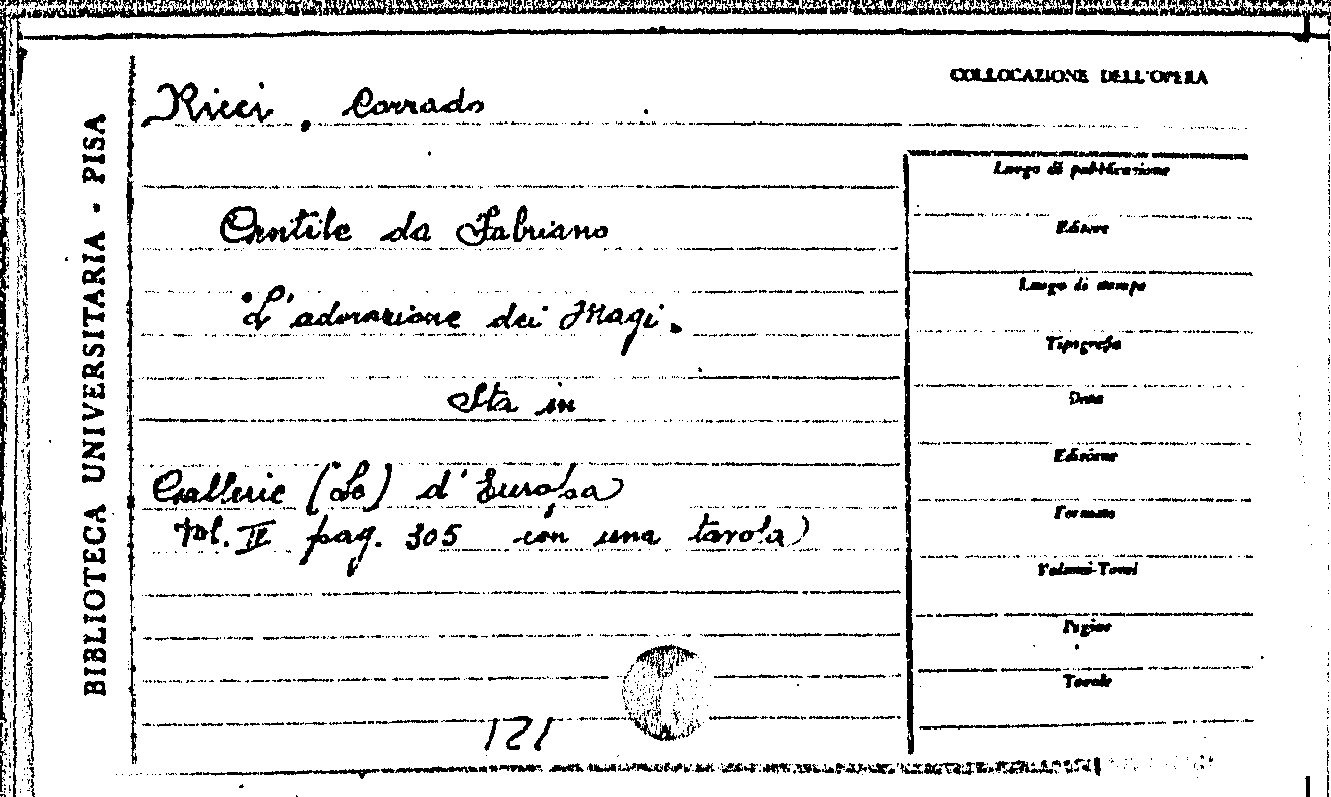 COLLOCAZIONE DELL'OPERA
Ricci, Corrado
Gentile da Fabriano
L'adorazione dei Magi.
Sta in
Gallerie (Le) d'Europa
Vol. II pag. 305 con una tavola)
121
BIBLIOTECA UNIVERSITARIA - PISA
Luogo di pubblicazione
Editore
Luogo di stampa
Tipografia
Data
Edizione
Formato
Volumi-Tomi
Pagine
Tavole